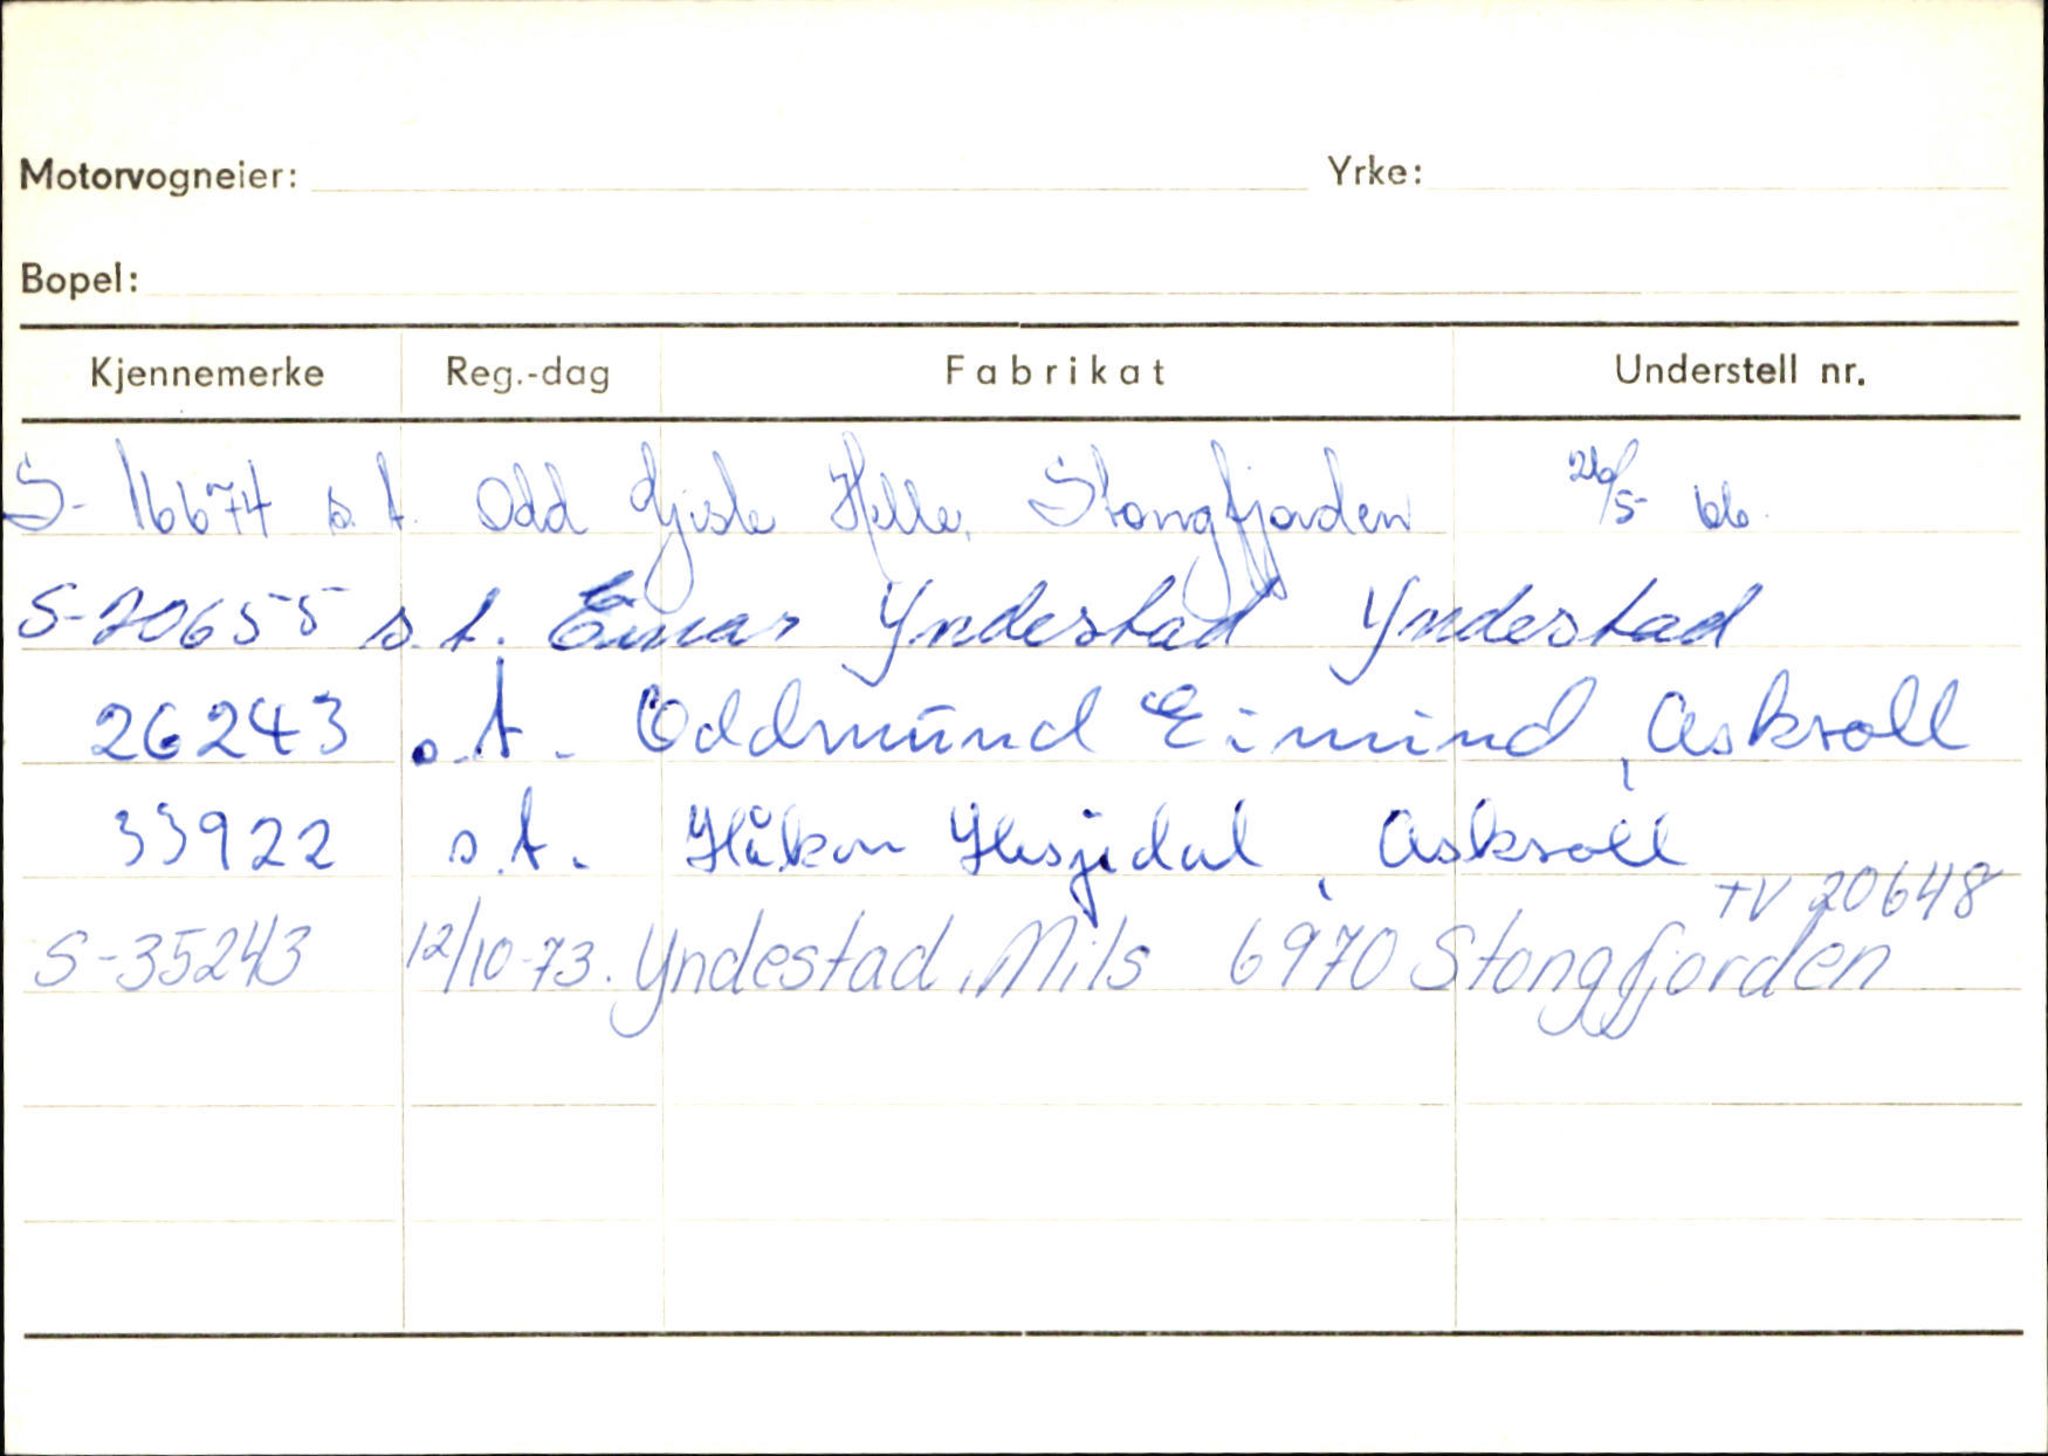 Motorvogneier: Yrke:
Bopel:
Kjennemerke Reg.-dag Fabrikat Understell nr.
S-16674 s.t. Odd Gisle Helle, Stongfjorden 26/5-66.
S-20655 s.t. Einar Yndestad Yndestad
26243 s.t. Oddmund Eimind, Askvoll
33922 s.t. Håkon Hesjedal, Askvoll
TV 20648
S-35243 12/10-73. Yndestad, Nils 6970 Stongfjorden